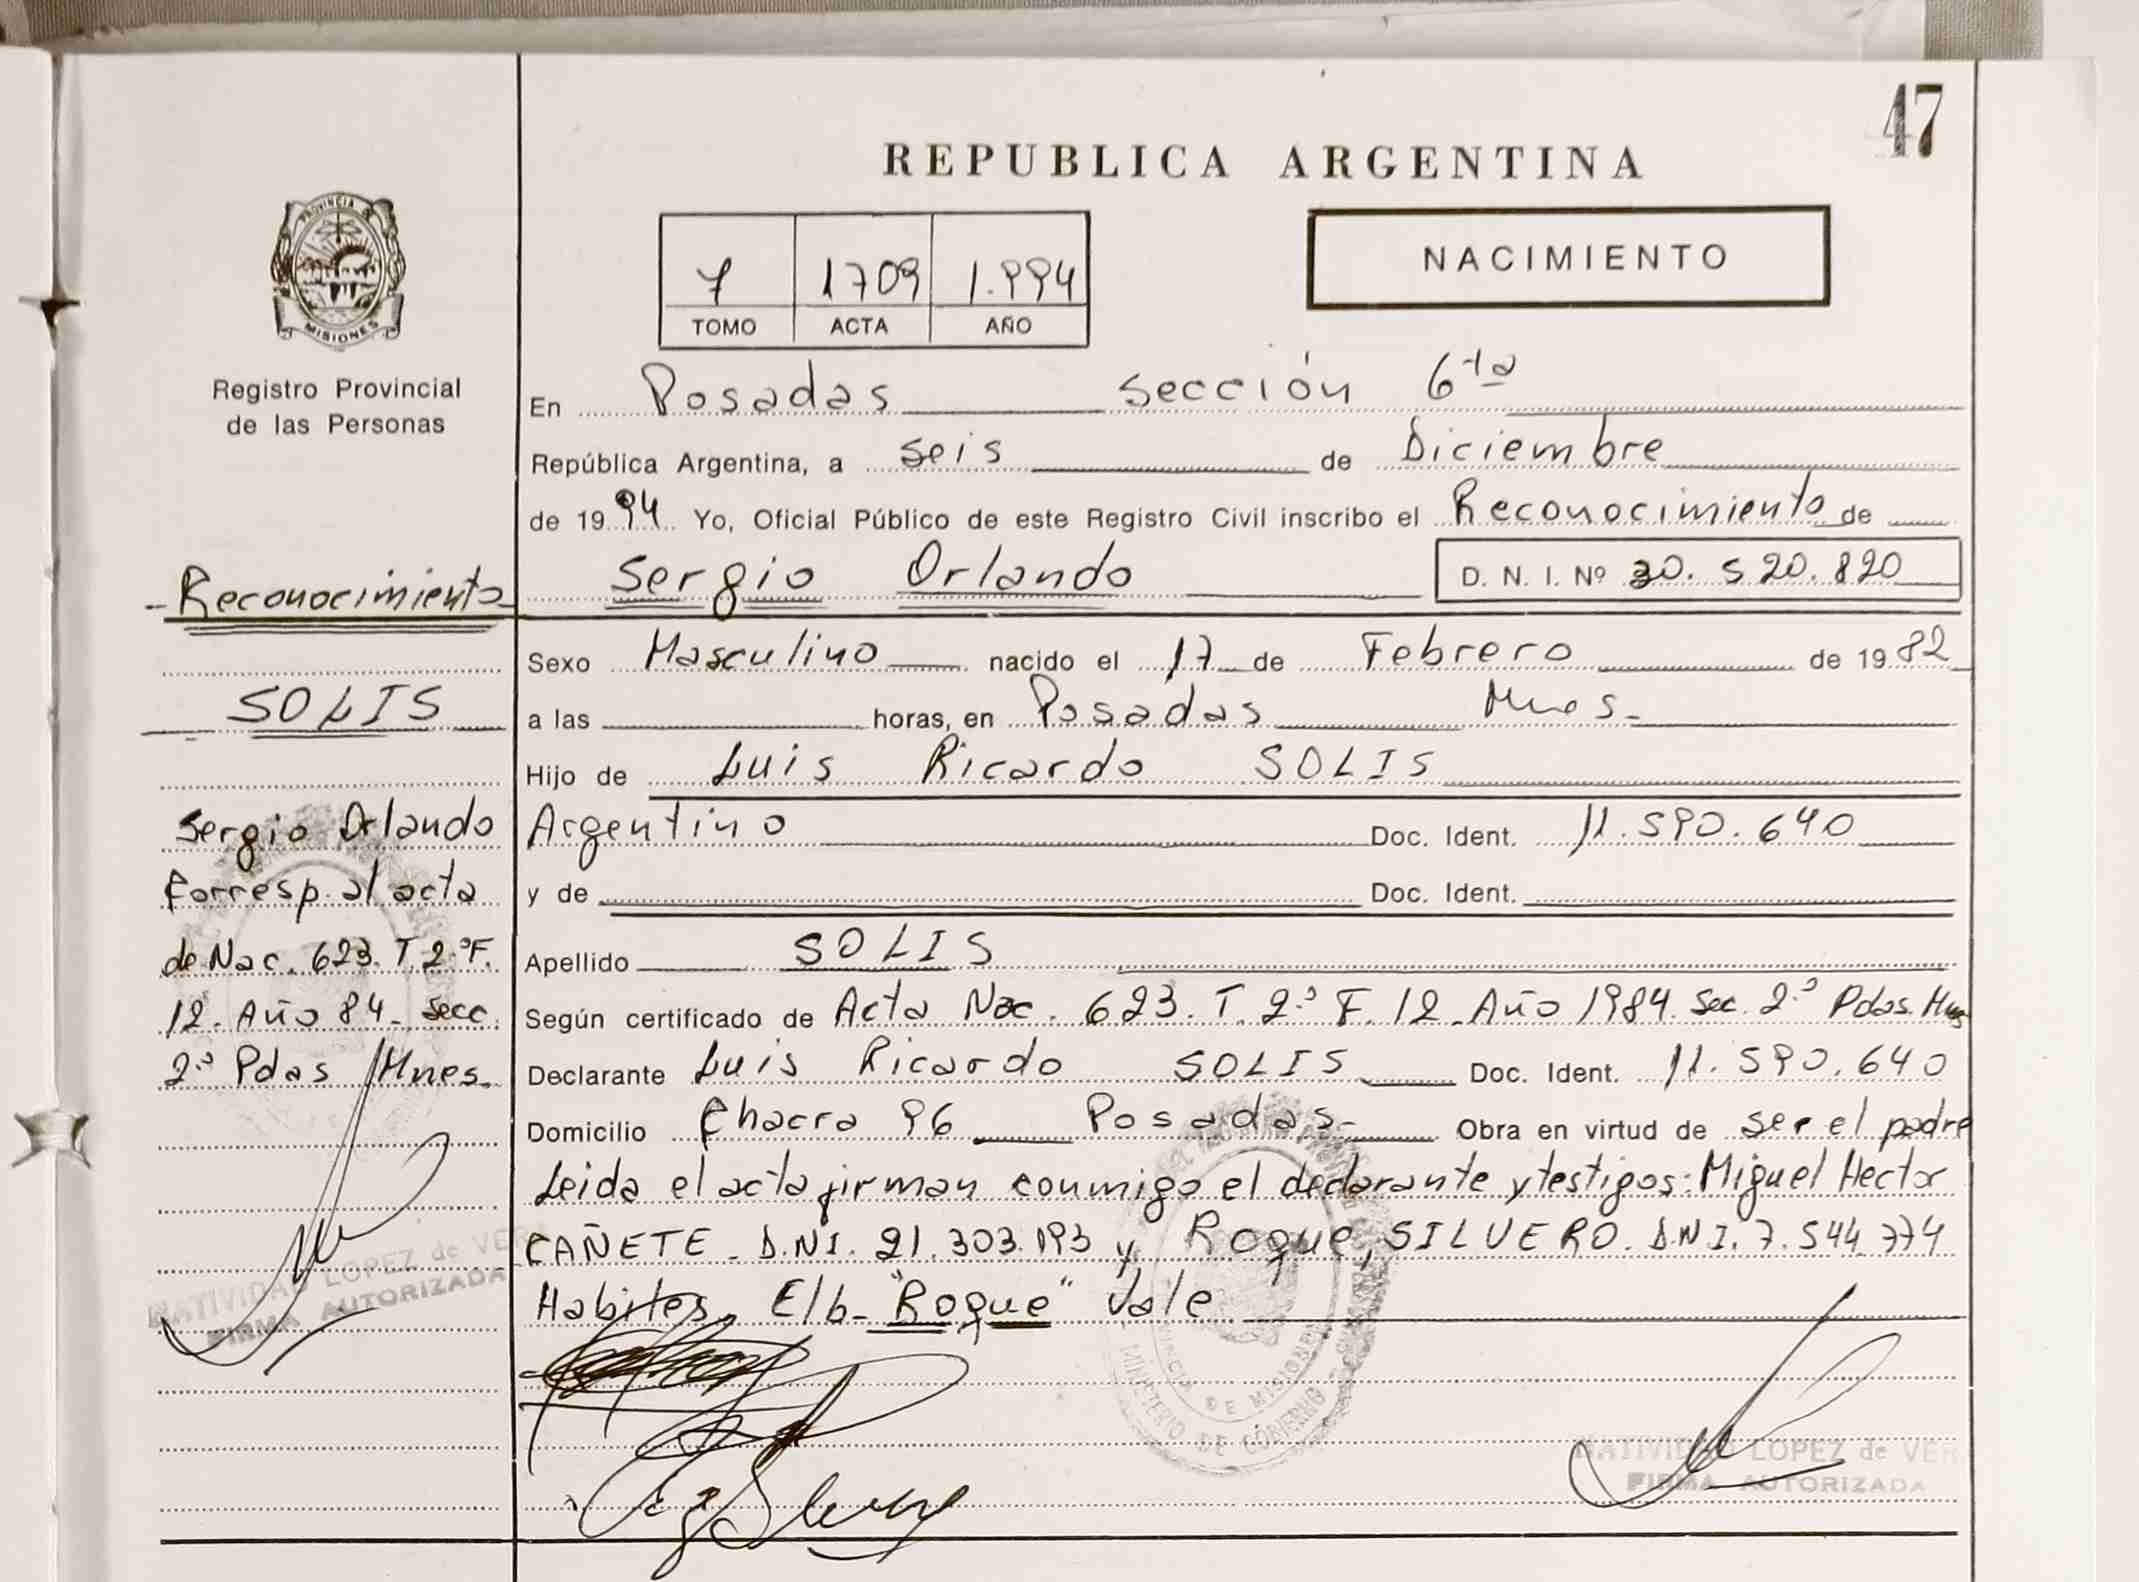 47
REPUBLICA ARGENTINA
NACIMIENTO
7 1709 1.994
TOMO ACTA AÑO
PROVINCIA DE
MISIONES
Registro Provincial
de las Personas
Reconocimiento
SOLIS
Sergio Orlando
Corresp. al acta
de Nac. 623. T. 2º F.
12. Año 84 - Secc.
2ª Pdas Mnes.
NATIVIDAD LOPEZ de VERA
FIRMA AUTORIZADA
En Posadas Sección 6ta
República Argentina, a seis de Diciembre
de 1994 Yo, Oficial Público de este Registro Civil inscribo el Reconocimiento de
Sergio Orlando D. N. I. Nº 30.520.820
Sexo Masculino nacido el 17 de Febrero de 1982
a las horas, en Posadas Mnes-
Hijo de Luis Ricardo SOLIS
Argentino Doc. Ident. 11.590.640
y de Doc. Ident.
Apellido SOLIS
Según certificado de Acta Nac. 623. T. 2º F. 12. Año 1984. Sec. 2ª Pdas. Mns
Declarante Luis Ricardo SOLIS Doc. Ident. 11.590.640
Domicilio Chacra 96 Posadas- Obra en virtud de ser el padre
Leida el acta firman conmigo el declarante y testigos: Miguel Hector
CAÑETE - D.N.I. 21.303.193 y Roque, SILVERO. D.N.I. 7.544.774
Habiles, E/b- "Roque" Vale
PROVINCIA DE MISIONES
MINISTERIO DE GOBIERNO
NATIVIDAD LOPEZ de VER
FIRMA AUTORIZADA